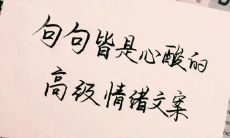 句句皆是心酸的
高级情绪文案